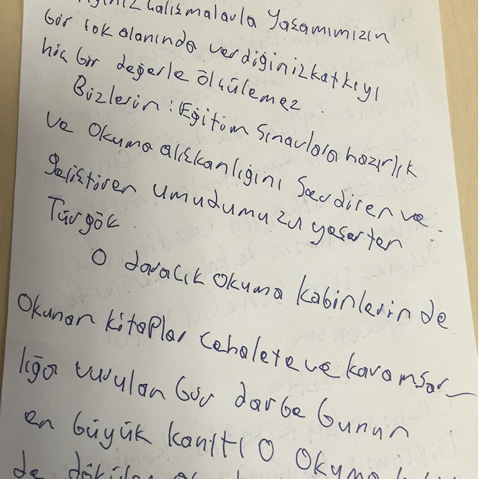 Çalışmalarla Yaşamımızın
Bir çok alanında verdiğiniz katkıyı
hiç bir değerle ölçülemez
Bizlerin: Eğitim Sınavlara hazırlık
ve okuma alışkanlığını Sevdiren ve
geliştiren umudumuzu yeşerten
Türgök
O daracık okuma kabinlerin de
Okunan kitaplar Cehalete ve karamsar
lığa vurulan bir darbe Bunun
en büyük kanıtı O okuma